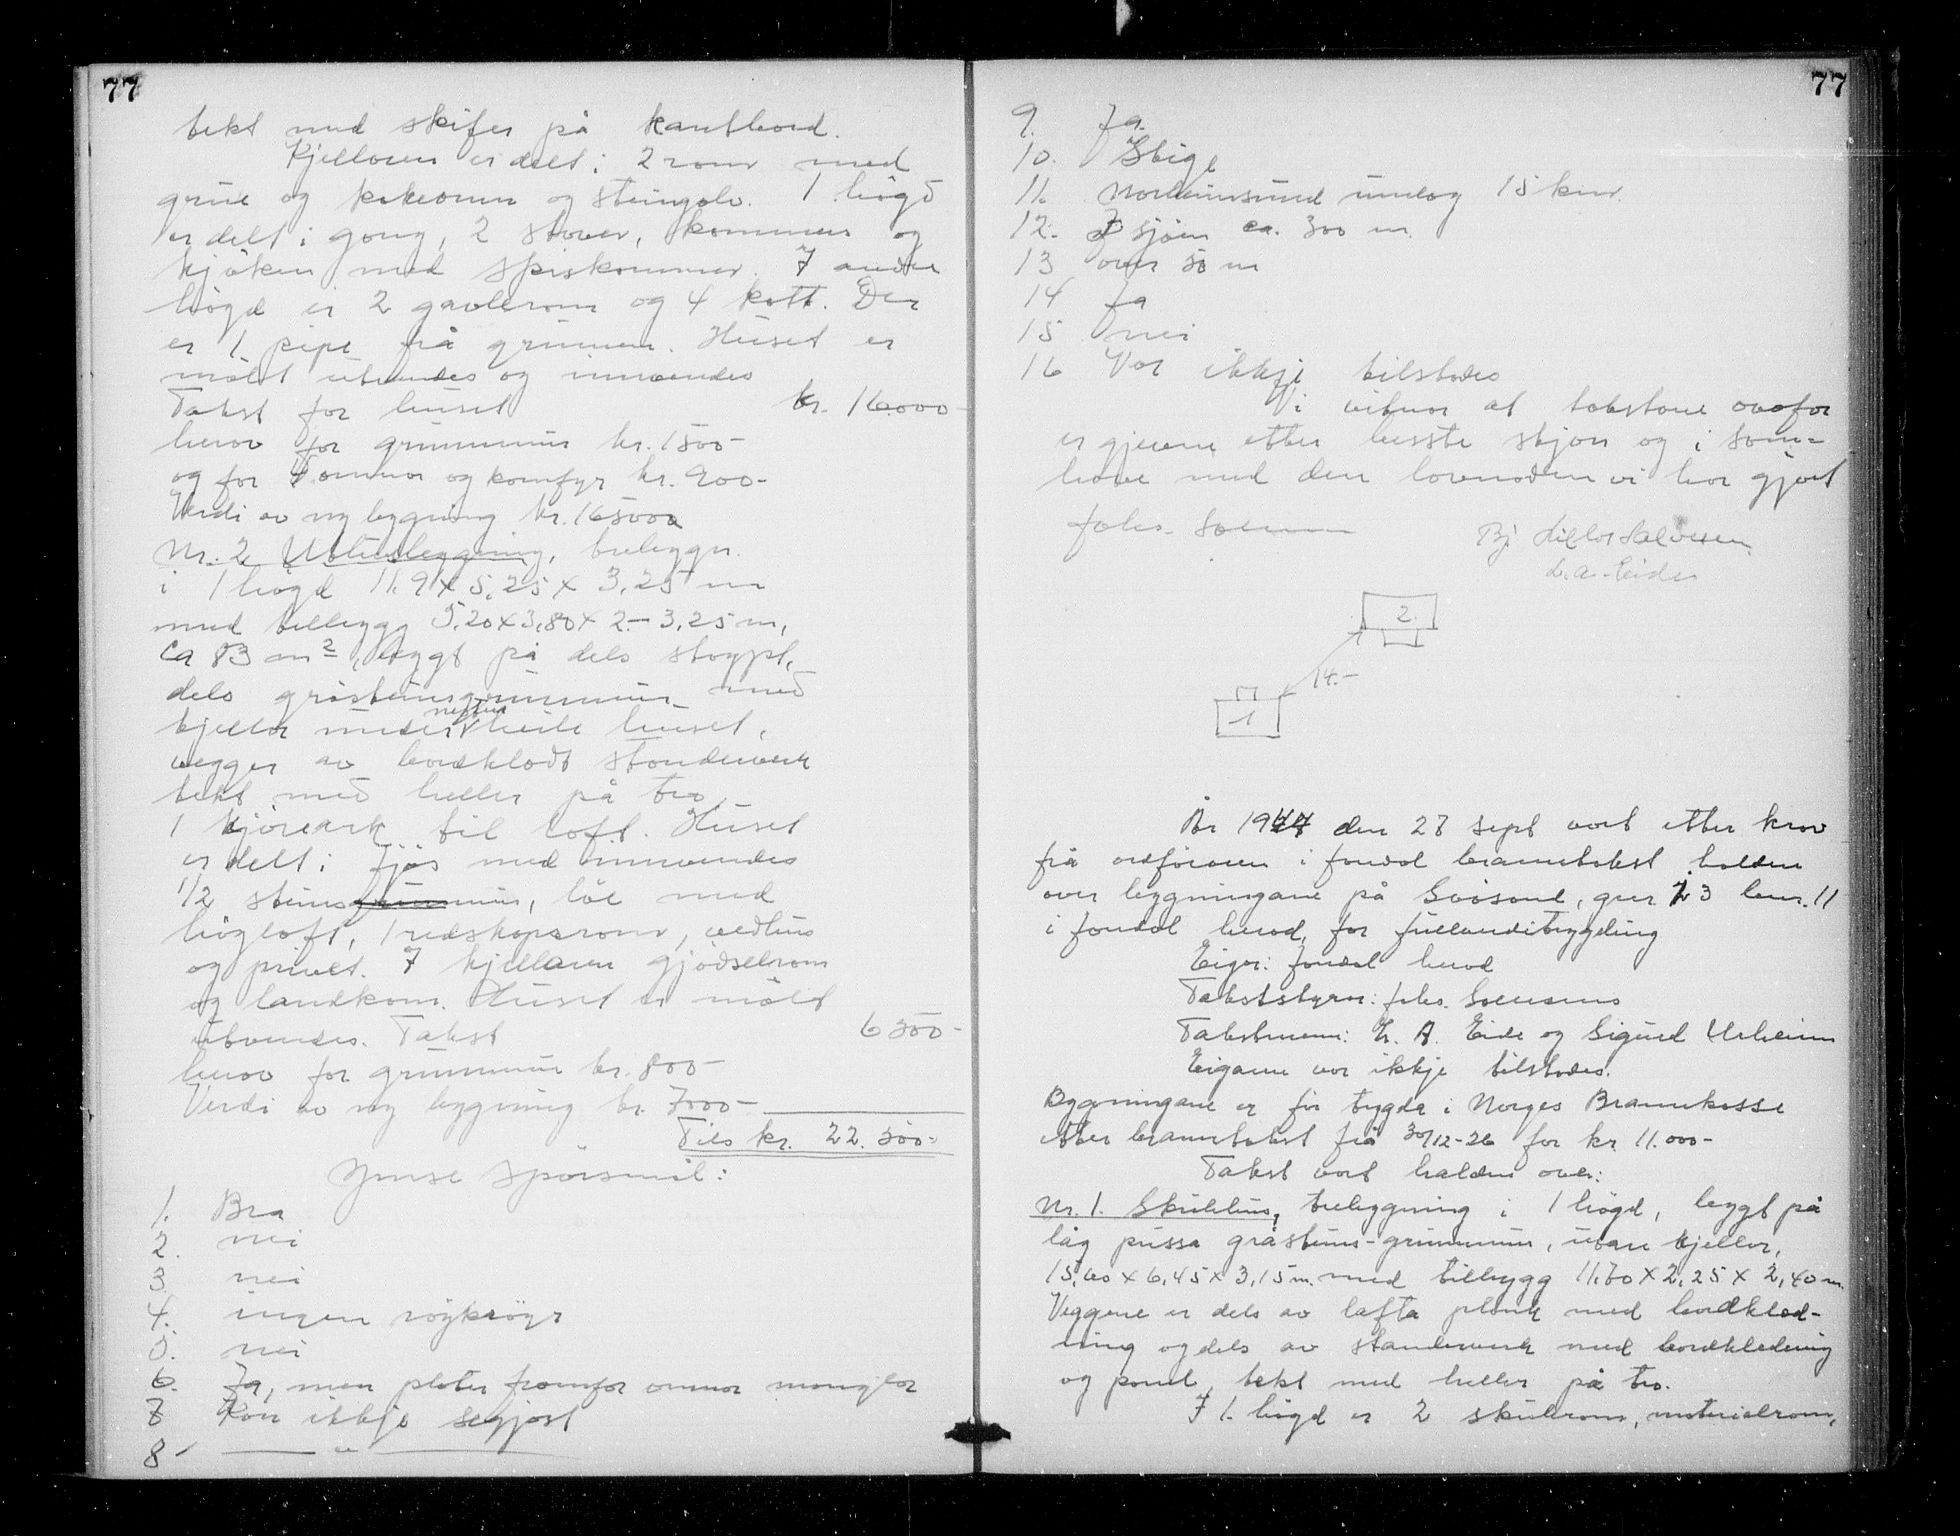 77
tekt med skifer på kantbord.
Kjellaren er delt i 2 rom med
grue og kokeomn og steingolv. 1 högd
er delt i gong, 2 stover, kommers og
kjöken med spiskommer. I andre
högd er 2 gavlerom og 4 kott. Der
er 1 pipe frå grunnen. Huset er
målt utvendes og innvendes
Takst for huset kr. 16.000-
herav for grunnmur kr. 1500-
og for omnar og komfyr kr. 900-
Verdi av ny bygning kr. 16500
Nr. 2 Uthusbygging, trebygn.
i 1 högd 11.9 x 5,25 x 3,25 m
med tilbygg 5,20 x 3,80 x 2.- 3,25 m,
ca 83 m², bygt på dels stöypt,
dels gråsteinsgrunnmur med
kjellar under nesten heile huset,
vegger av bordklædt stonderverk
tekt med heller på tro
1 kjöreark til loft. Huset
er delt i fjös med innvendes
1/2 steinsgrunnmur, löe med
högloft, 1 redskapsrom, vedhus
og privet. I kjellaren gjödselrom
og landkom. Huset er målt
utvendes. Takst 6500-
herav for grunnmur kr. 800-
Verdi av ny bygning kr. 7000-
Tils kr. 22.500-
Ymse spörsmål:
1. Bra
2. nei
3 nei
4. ingen röykröyr
5. nei
6. Ja, men plater framfor omnar manglar
7 Kan ikkje segjast
8 - — " —
77
9. Ja.
10. Stige
11. Norheimsund umlag 15 km.
12. I sjöen ca. 300 m.
13 over 50 m
14 Ja
15 nei
16 Var ikkje tilstades
Vi vitnar at takstane ovafor
er gjevne etter beste skjön og i sam-
have med den lovnaden vi har gjort
Johs. Soldal
L. A. Eide
2.
14.-
1
År 1944 den 27 sept vart etter krav
frå ordföraren i Jondal branntakst halden
over bygningane på Svåsand, gnr 23 bnr. 11
i Jondal herad, for fullverditrygding
Eigar: Jondal herad
Takststyrar: Johs.
Takstmenn: L. A. Eide og Sigurd Utheim
Eigaren var ikkje tilstades.
Bygningane er för trygda i Norges Brannkasse
etter branntakst frå 30/12-26 for kr. 11.000-
Takst vart halden over:
Nr. 1. Skulehus, trebygning i 1 högd, bygt på
låg pussa gråsteins-grunnmur, utan kjellar,
15,60 x 6,45 x 3,15 m. med tilbygg 11,70 x 2,25 x 2,40 m.
Veggene er dels av lafta plank med bordklæd-
ning og dels av standerverk med bordkledning
og panel, tekt med heller på tro.
I 1. högd er 2 skulerom, materialrom,